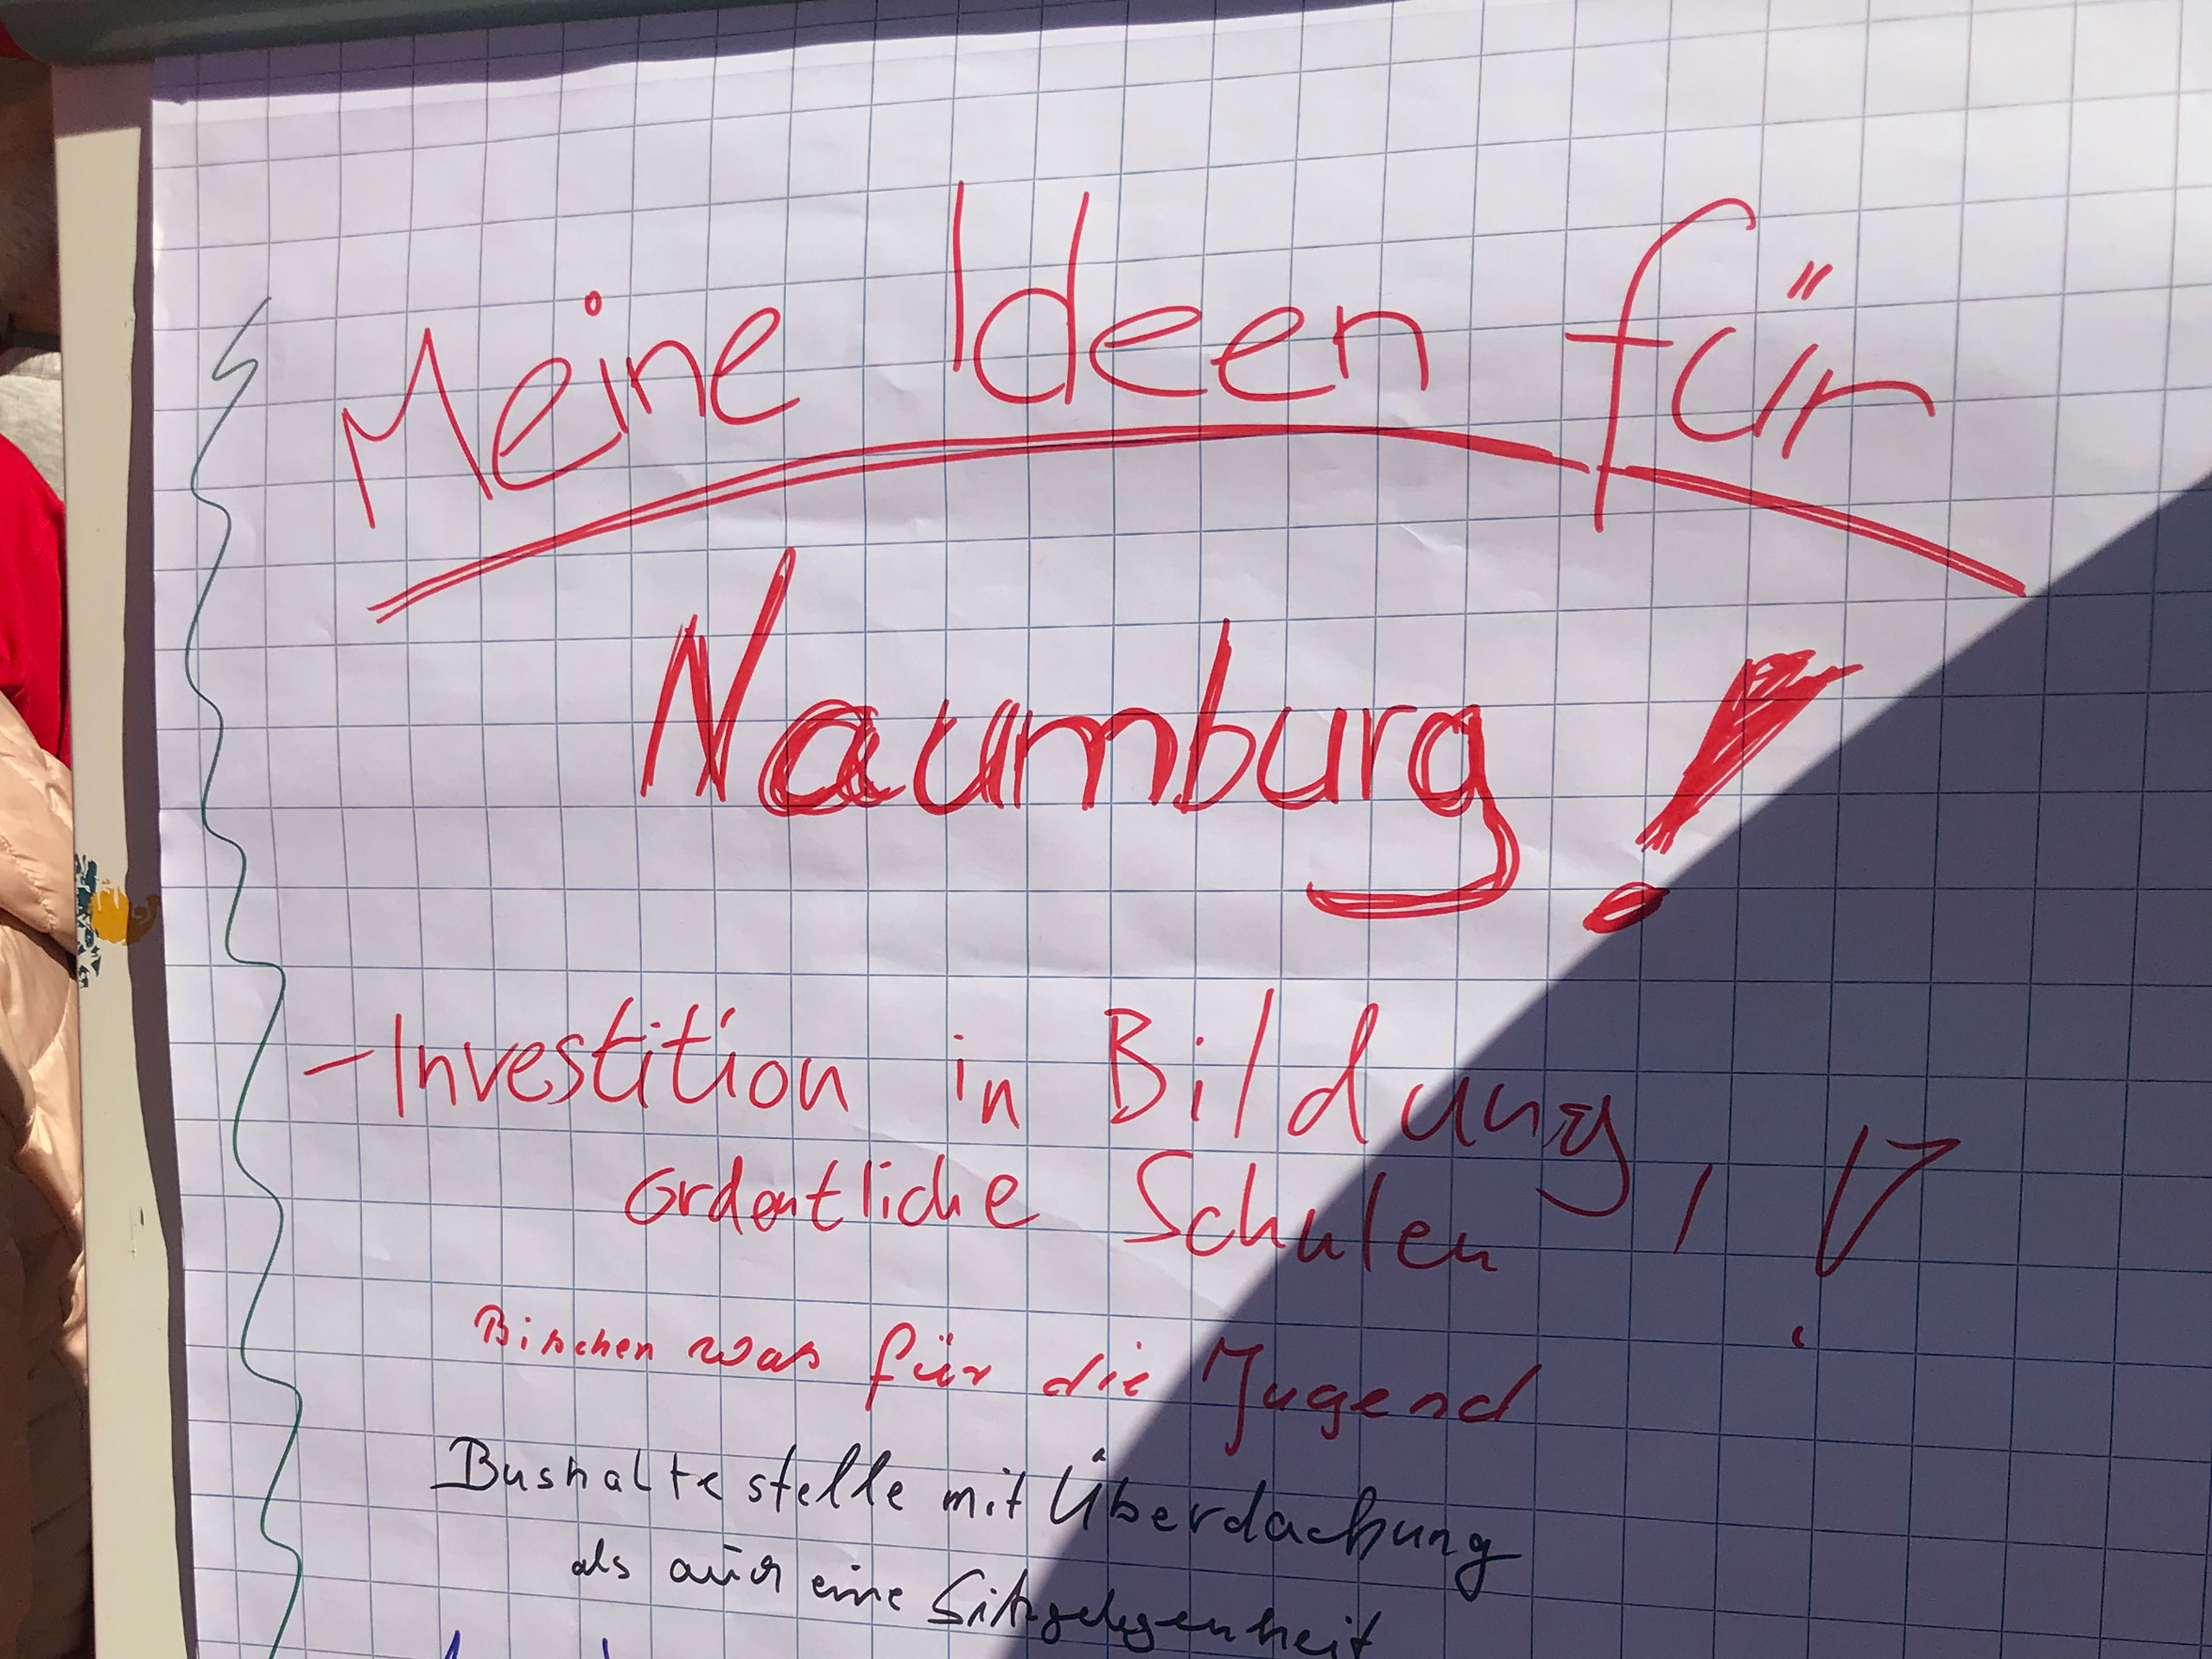 Meine Ideen für
Naumburg!
- Investition in Bildung,
ordentliche Schulen, !
Bischen was für die Jugend
Bushaltestelle mit Überdachung
als auch eine Sitzgelegenheit